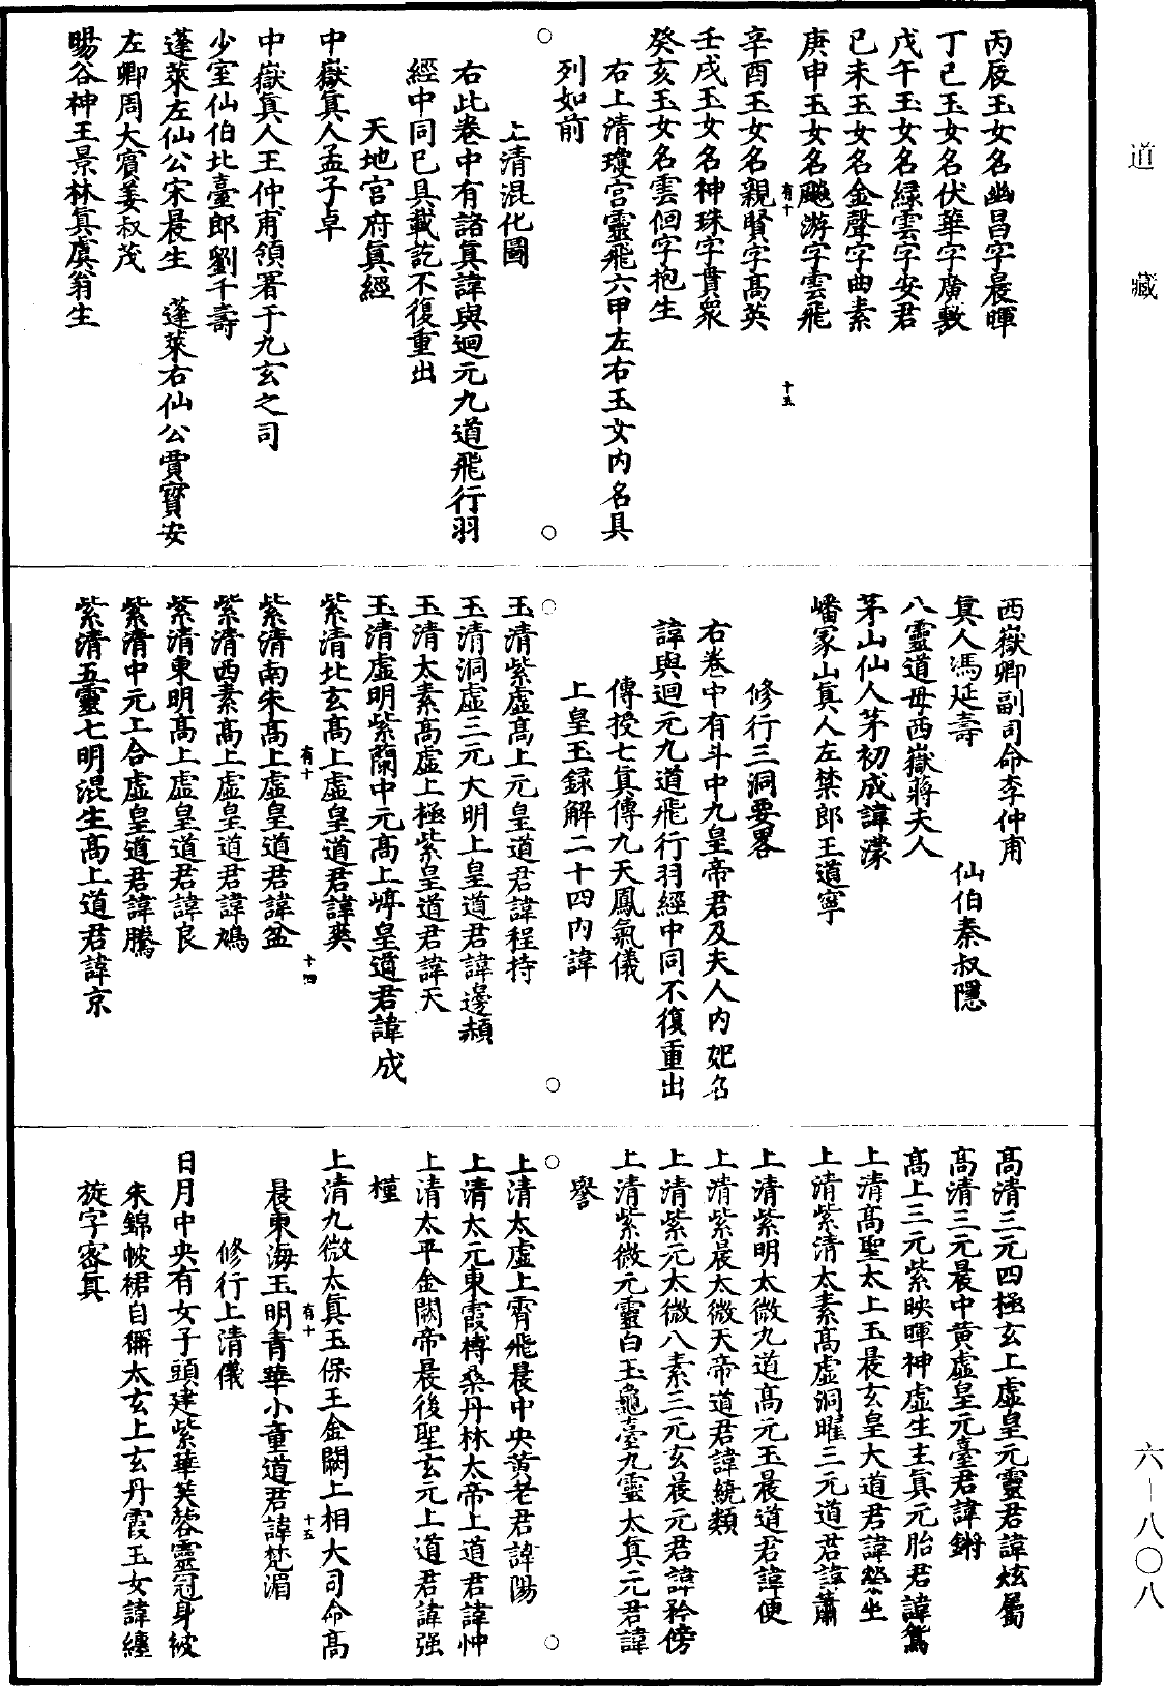 道藏
丙辰玉女名幽昌字晨暉
丁巳玉女名伏華字廣敷
戊午玉女名綠雲字安君
已未玉女名金聲字曲素
庚申玉女名飈游字雲飛
有十
十五
辛酉玉女名親賢字髙英
壬戌玉女名神珠字賁衆
癸亥玉女名雲佪字抱生
右上清瓊宫靈飛六甲左右玉女内名具
列如前
上清混化圖
右此卷中有諸真諱與迴元九道飛行羽
經中同已具載訖不復重出
天地宫府真經
中嶽真人孟子卓
中嶽真人王仲甫領署于九玄之司
少室仙伯北臺郎劉千壽
蓬萊左仙公宋晨生 蓬萊右仙公賈寶安
左卿周大賓姜叔茂
暘谷神王景林真虞翁生
西嶽卿副司命李仲甫
真人馮延壽 仙伯秦叔隱
八靈道母西嶽蔣夫人
茅山仙人茅初成諱濛
嶓冢山真人左禁郎王道寧
修行三洞要畧
右卷中有斗中九皇帝君及夫人内妃名
諱與迴元九道飛行羽經中同不復重出
傳授七真傳九天鳳氣儀
上皇玉録解二十四内諱
玉清紫虛髙上元皇道君諱程持
玉清洞虛三元大明上皇道君諱邊頳
玉清太素髙虛上極紫皇道君諱天
玉清虛明紫蘭中元髙上崢皇道君諱成
紫清北玄髙上虛皇道君諱葖
有十
十四
紫清南朱髙上虛皇道君諱盆
紫清西素髙上虛皇道君諱鳩
紫清東明髙上虛皇道君諱良
紫清中元上合虛皇道君諱騰
紫清五靈七明混生髙上道君諱京
髙清三元四極玄上虛皇元靈君諱炫屬
髙清三元晨中黄虛皇元臺君諱鏘
髙上三元紫映暉神虛生主真元胎君諱鴛
上清髙聖太上玉晨玄皇大道君諱
上清紫清太素髙虛洞曜三元道君諱蕭
上清紫明太微九道髙元玉晨道君諱便
上清紫晨太微天帝道君諱繞類
上清紫元太微八素三元玄晨元君諱矜傍
上清紫微元靈白玉龜臺九靈太真元君諱
謩
上清太虛上霄飛晨中央黄老君諱陽
上清太元東霞榑桑丹林太帝上道君諱忡
上清太平金闕帝晨後聖玄元上道君諱强
槿
上清九微太真玉保王金闕上相大司命髙
有十
十五
晨東海玉明青華小童道君諱㛃湄
修行上清儀
日月中央有女子頭建紫華芙蓉靈冠身披
朱錦帔裙自稱太玄上玄丹霞玉女諱纏
旋字密真
六-八〇八